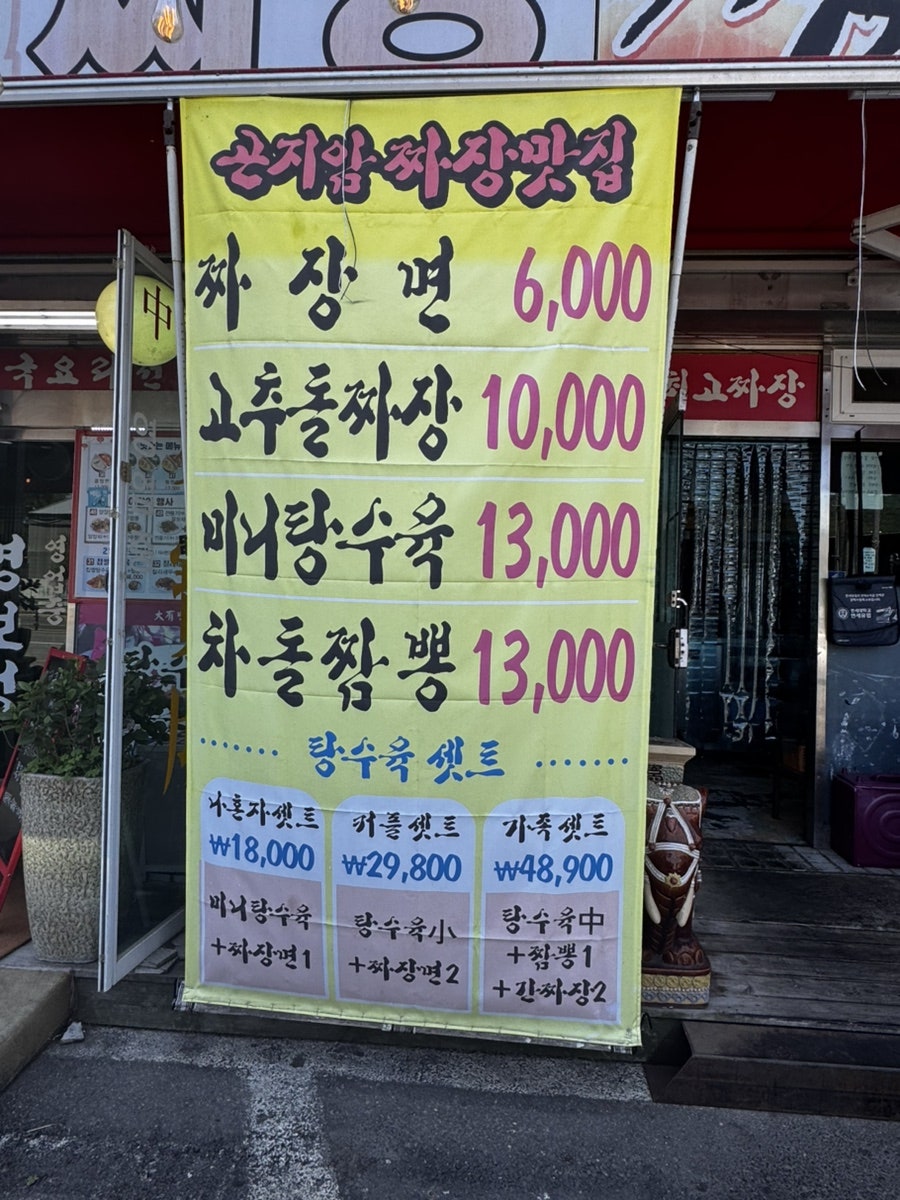 곤지암 짜장맛집
짜장면 6,000
고추돌짜장 10,000
미니탕수육 13,000
차돌짬뽕 13,000
탕수육 셋트
나혼자셋트
₩18,000
미니탕수육
+짜장면1
커플셋트
₩29,800
탕수육小
+짜장면2
가족셋트
₩48,900
탕수육中
+짬뽕1
+간짜장2
中
국요리전
최고짜장
영업중
大有